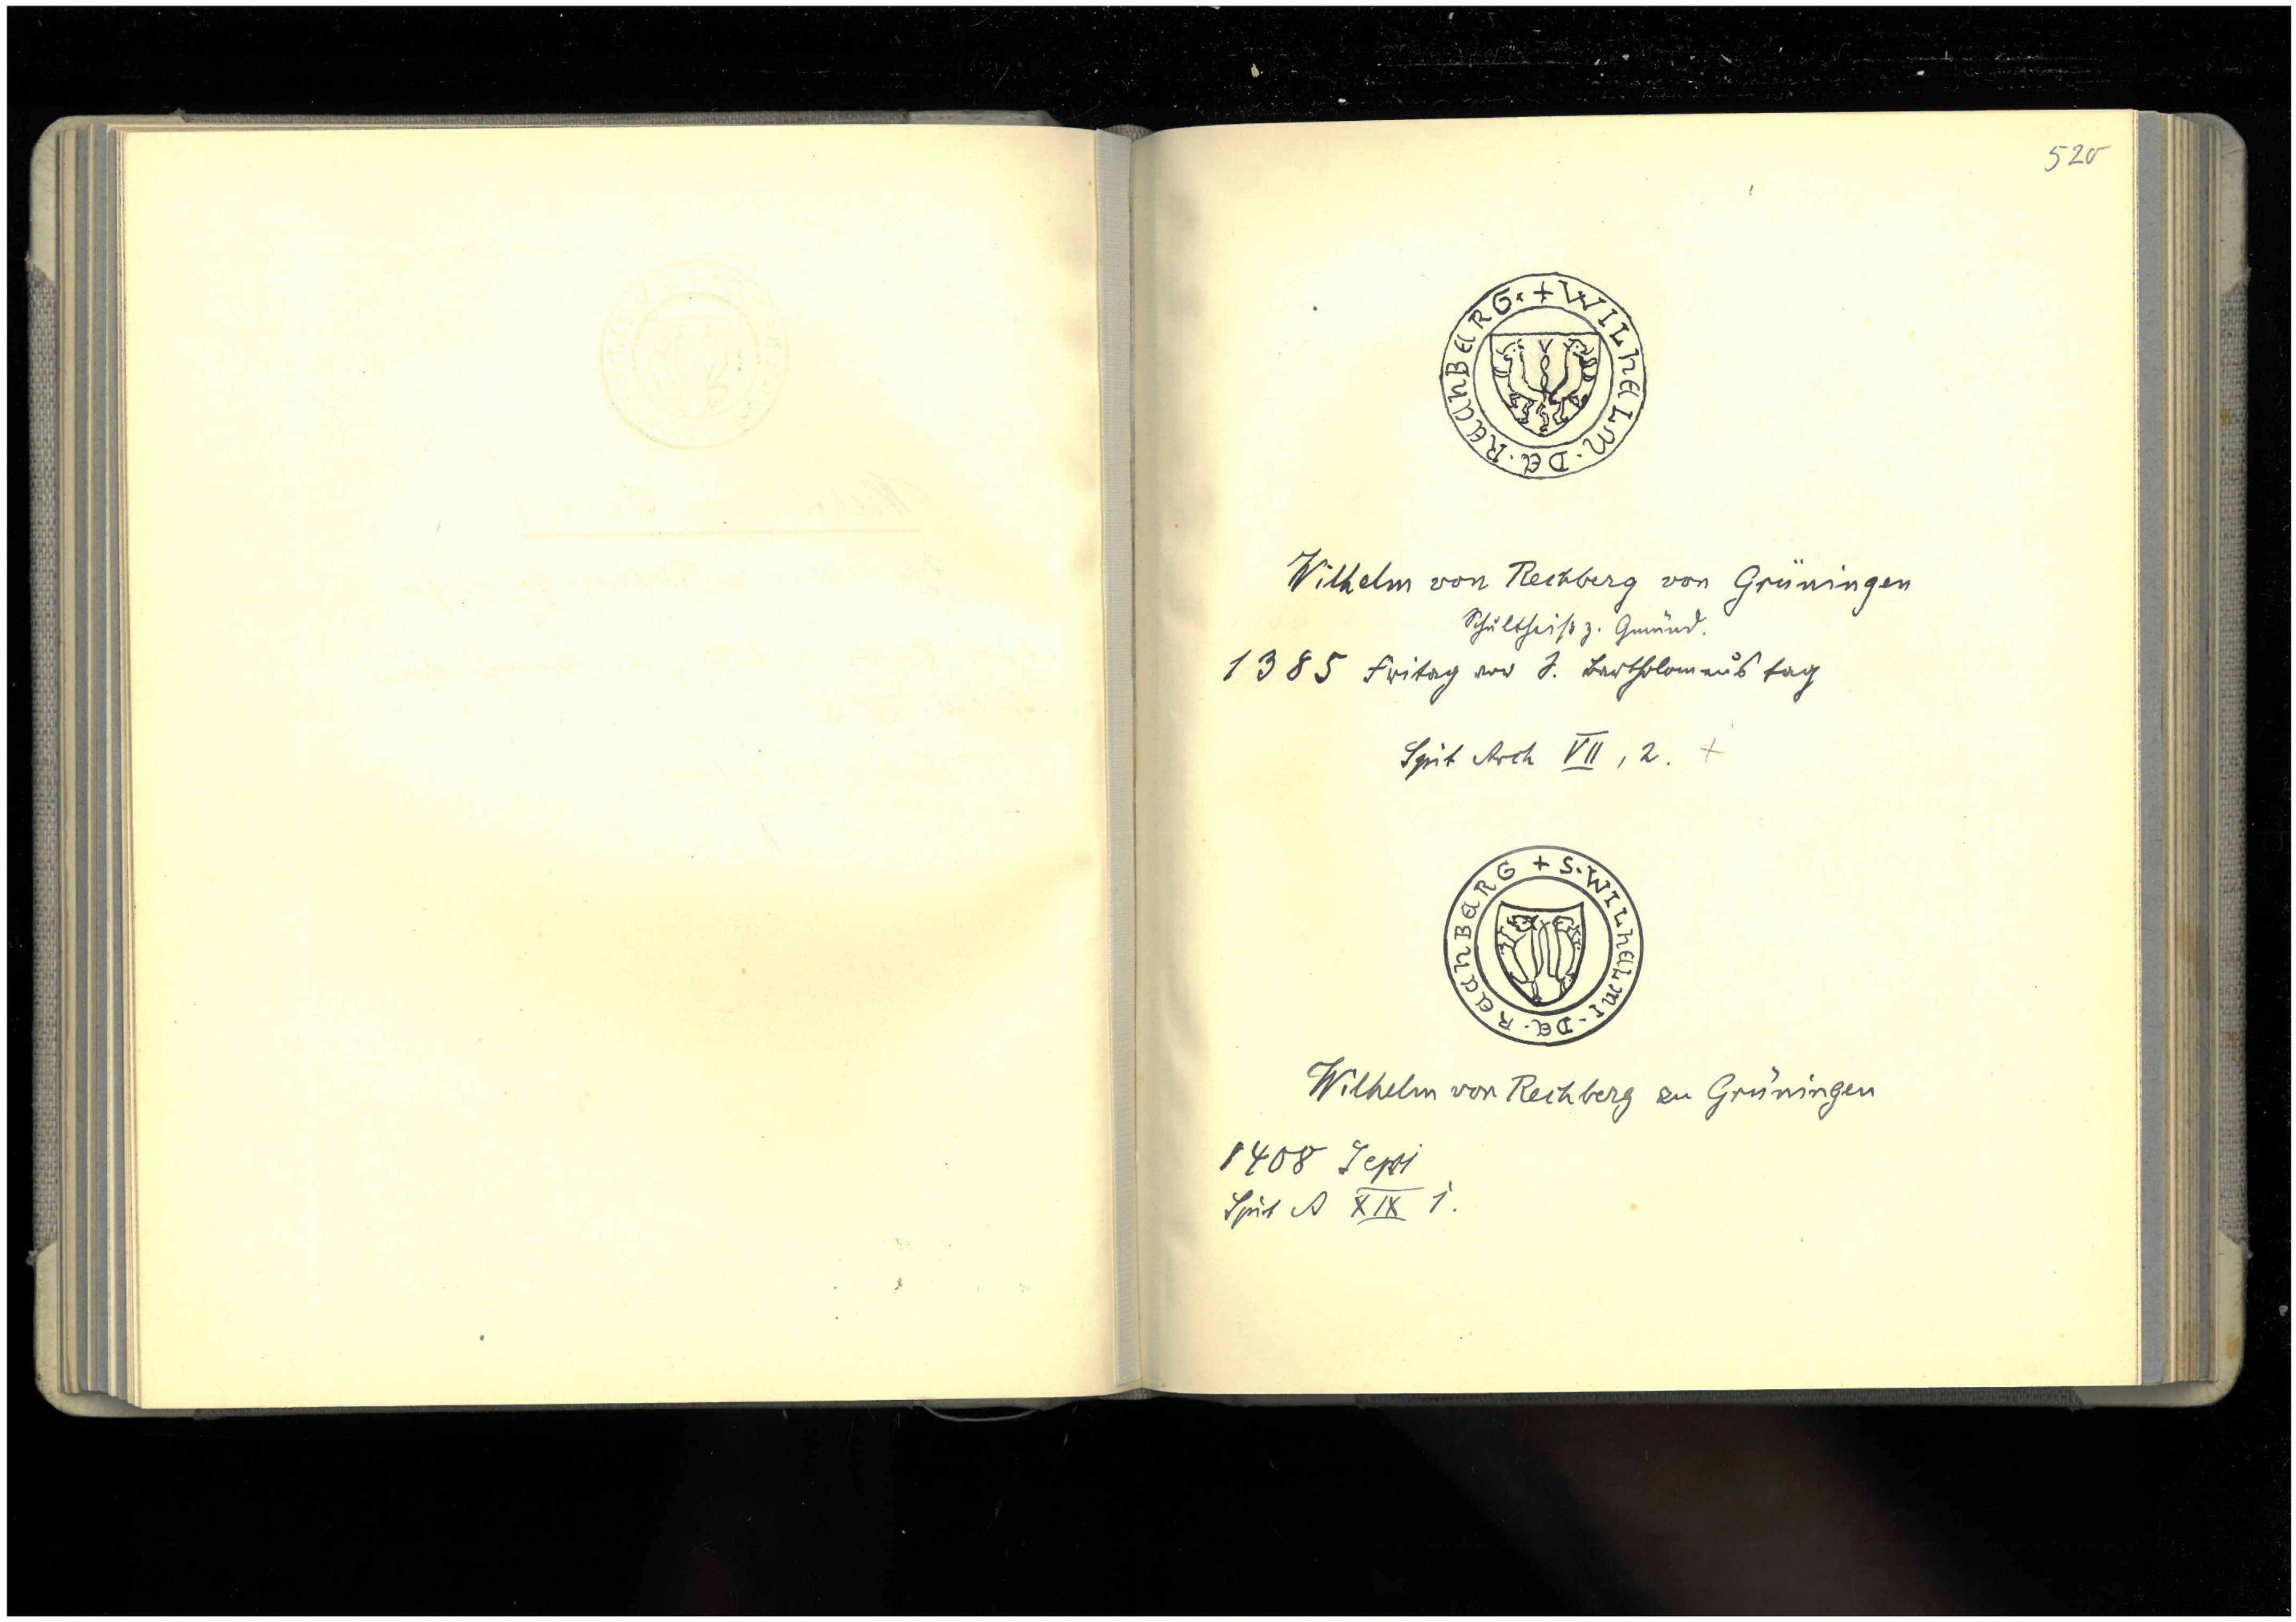 520
+ WILHELM · DE · RECHBERG ·
Wilhelm von Rechberg von Grüningen
Schultheiß z. Gmünd.
1385 Fritag vor S. Bartholomeus tag
Spit Arch VII, 2. +
+ S · WILHELMI · DE · RECHBERG
Wilhelm von Rechberg zu Grüningen
1408
Spit A XIX 1.